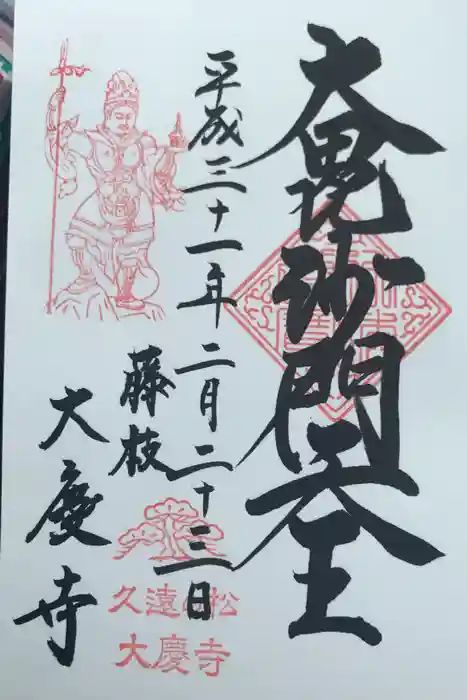 大毘沙門天王
平成三十一年二月二十三日
藤枝
大慶寺
久遠の松
大慶寺